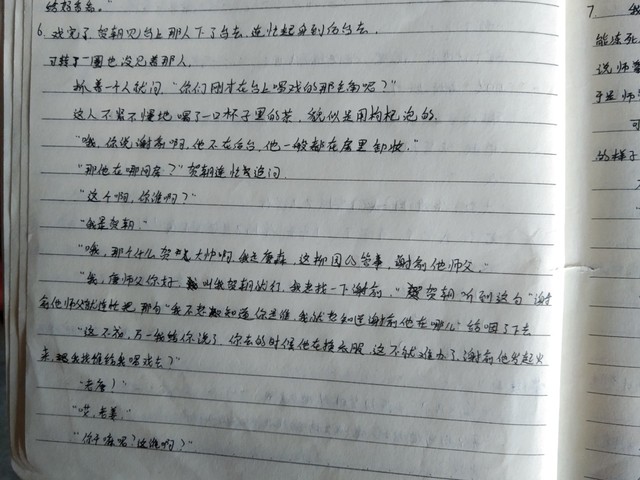 结损舍命。
6. 戏完了,贺朝见台上那人下了台去,连忙起身到后台去,
可转了一圈也没见着那人。
抓着一个人就问,“你们刚才在台上唱戏的那主角呢?”
这人不紧不慢地喝了一口杯子里的茶,貌似是用枸杞泡的。
“哦,你说谢俞啊,他不在后台,他一般都在房里卸妆。”
“那他在哪间房?”贺朝连忙追问
“这个啊,你谁啊?”
“我是贺朝。”
“哦,那个什么贺大帅啊,我是唐森,这梨园的管事,谢俞他师父。”
“哦,唐师父你好,叫我贺朝就行,我是找一下谢俞。”贺朝听到这句“谢
俞他师父”就连忙把那句“我不想知道你是谁,我就想知道谢俞他在哪儿”给咽了下去
“这不行,万一我给你说了,你去的时候他在换衣服,这不就难办了,谢俞他发起火
来,我找谁给我唱戏去?”
“老唐!”
“哎,老姜”
“你干嘛呢?这谁啊?”
7. 我
能凌死
说师
于是师
可
的样子